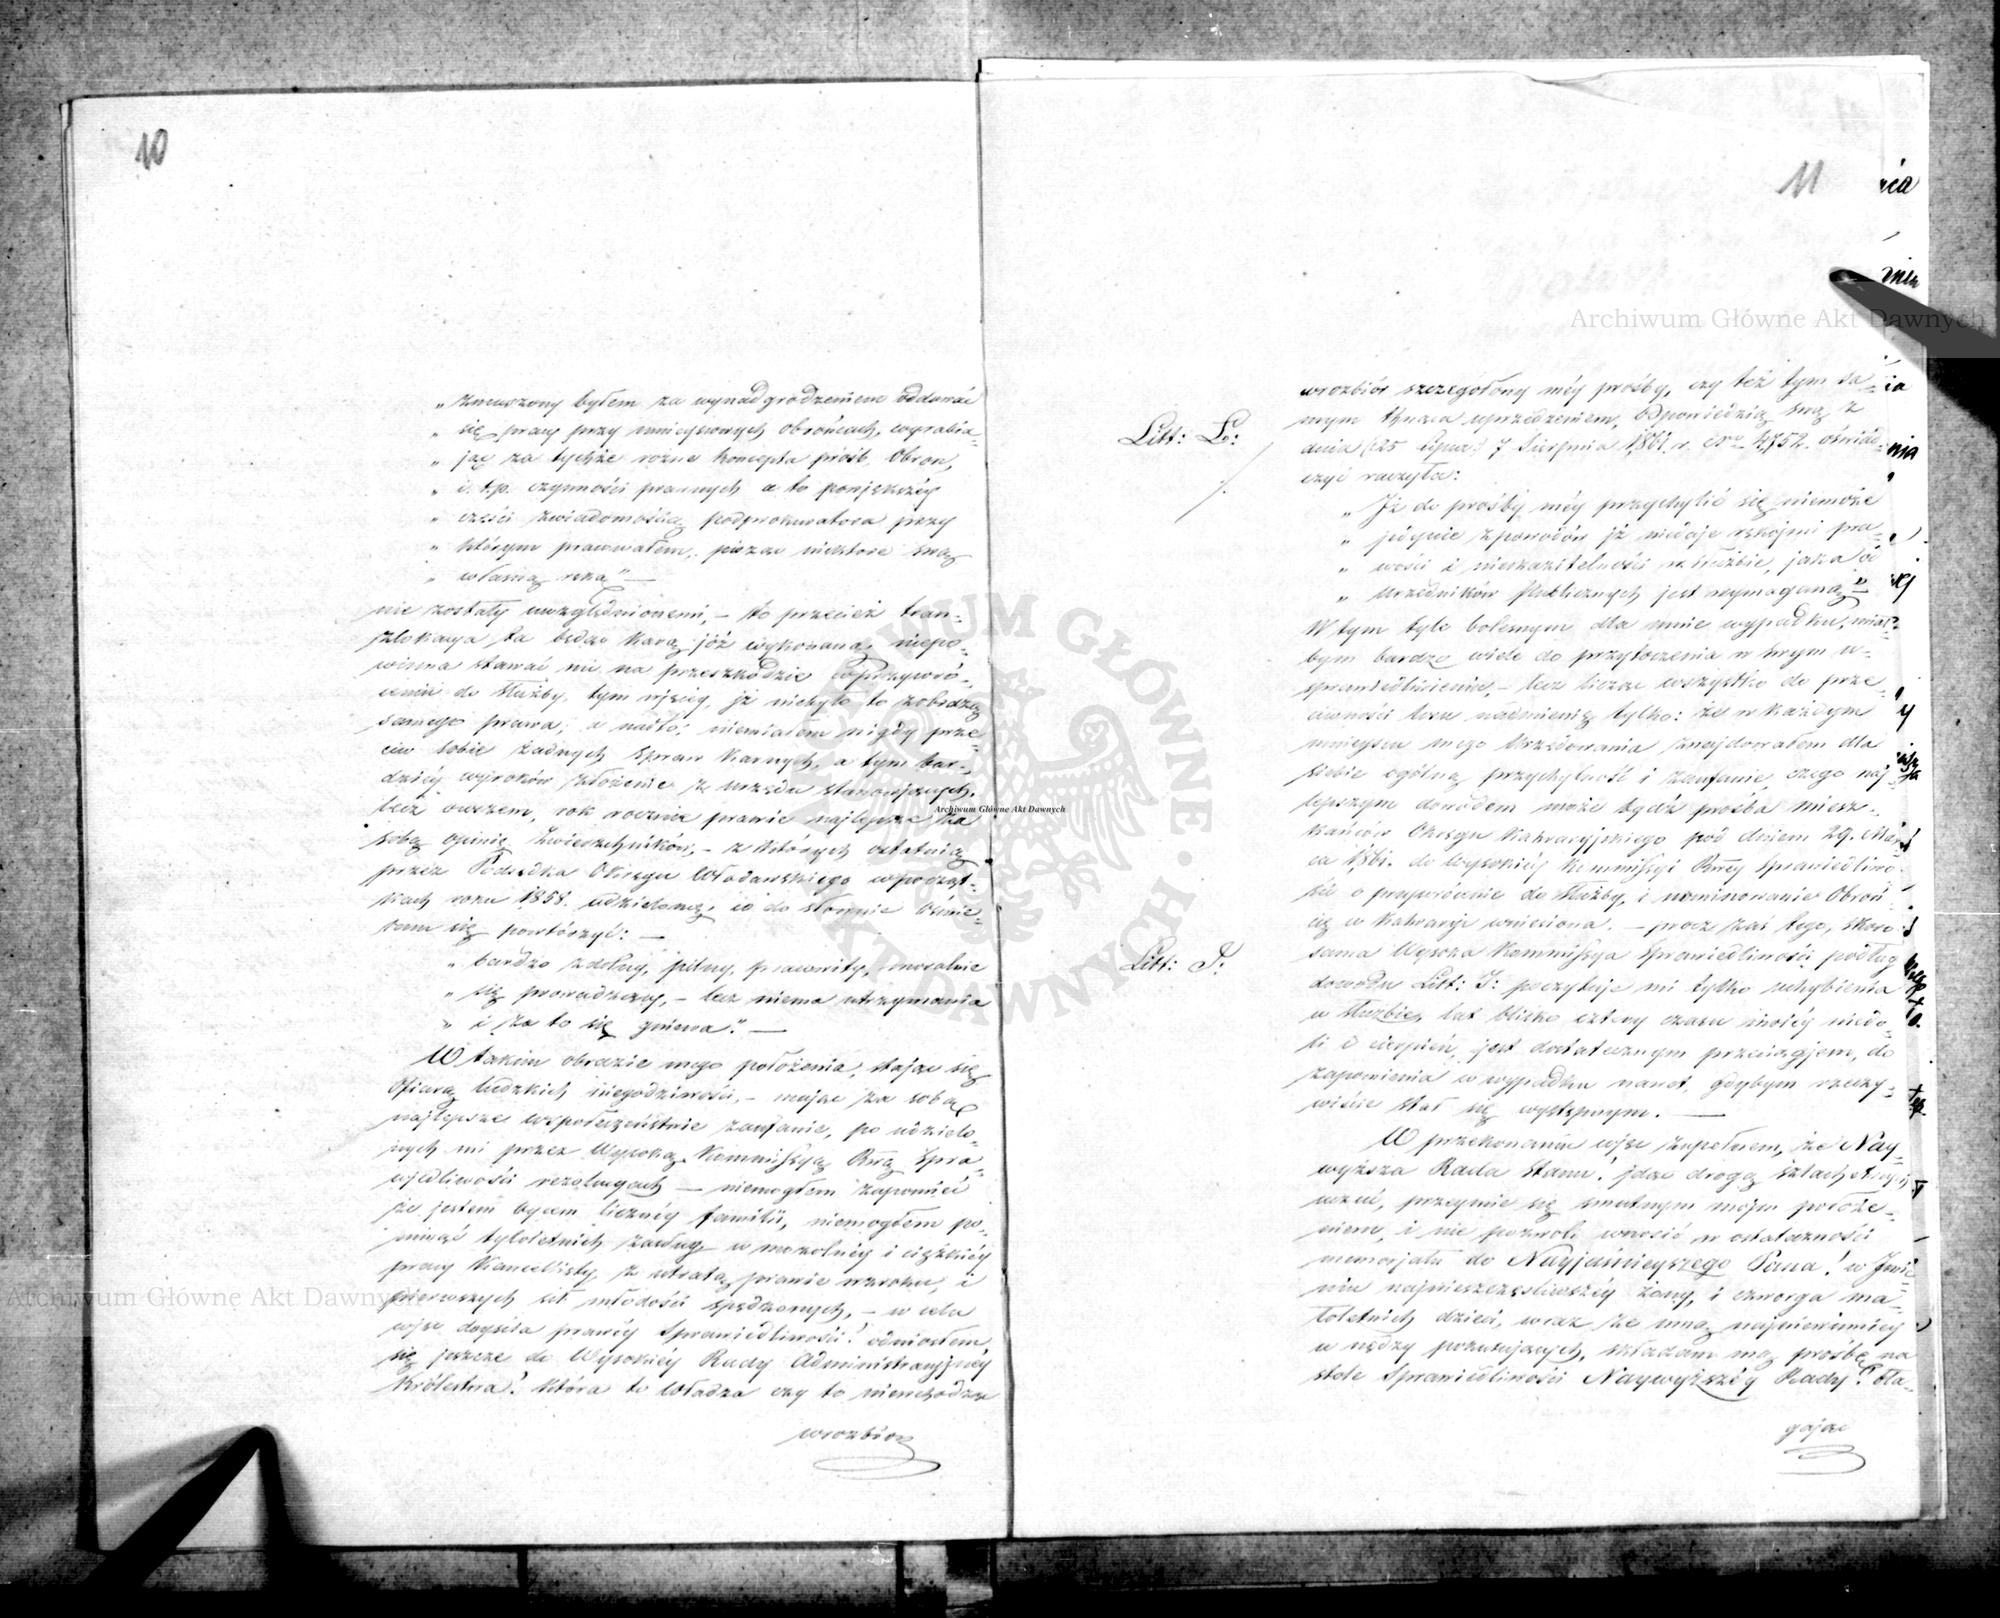 10
„ zmuszony byłem za wynadgrodzeniem oddawać
„ się pracy przy miejscowych obrońcach, wyrabia-
„ jąc za tychże rożne koncepta próśb, Obron,
„ i. t. p. czynności prawnych a to powiększéj
„ części zwiadomością podprokuratora przy
„ którym pracowałem, pisząc niektore swą
„ własną ręką" —
nie zostały uwzględnionemi, — to przecież tran-
zlokacya ta będąc karą już wykonaną, niepo-
winna stawać mi na przeszkodzie
do służby, tym więcéj, iż niebyło to zobrazą
samego prawa, a nadto, niemiałem nigdy prze-
ciw sobie żadnych spraw karnych, a tym bar-
dziéj wyroków złożenie z urzędu stanowiących.
lecz owszem, rok rocznie prawie najlepsze za
sobą opinie Zwierzchników, — z których ostatnią
przez Podsędka Okręgu Włodawskiego wpocząt-
kach roku 1858. udzieloną, co do słownie ośmie-
lam się powtórzyć: —
„ bardzo zdolny, pilny, pracowity, moralnie
„ się prowadzący, — lecz niema utrzymania
„ i za to się gniewa." —
W takim obrazie mego położenia, stając się
Ofiarą ludzkich niegodziwości, — mając za sobą
najlepsze współuczestnie zaufanie, po udzielo-
nych mi przez Wysoką Kommissyą Rzą Spra-
wiedliwości rezolucyach — niemogłem zapomnieć
że jestem Ojcem licznéj familii, niemogłem po-
minąć tyloletnich zasług w mozolnéj i ciężkiéj
pracy Kancellisty, z utratą prawie wzroku, i
pierwszych sił młodości spędzonych, — w celu
więc dojścia prawéj Sprawiedliwości! odniosłem
się jeszcze do Wysokiéj Rady Administracyjnéj
Królestwa! która to Władza czy to niewchodząc
wrozbiór
11
Litt: L:
Litt: J:
wrozbiór szczegołowy méj prośby, czy też tym sa-
mym uprzedzeniem, odpowiedzią swą z
dnia (25 Lipca) 7 Sierpnia 1861 r. Nro 4,752. oświad-
czyć raczyła:
„ Iż do prośby méj przychylić się niemoże
„ jedynie zpowodów iż niedaje rękojmi pra-
„ wości i nieskazitelności w służbie, jaka od
„ Urzędników Publicznych jest wymaganą" —
W tym tyle bolesnym dla mnie wypadku, miał-
bym bardzo wiele do przytoczenia w swym u-
sprawiedliwieniu, — lecz licząc wszystko do prze-
ciwności losu nadmienię tylko: że w każdym
miejscu mego Urzędowania znajdowałem dla
siebie ogólną przychylność i zaufanie, czego naj-
lepszym dowodem może bydź prośba miesz-
kańców Okręgu Kalwaryjskiego pod dniem 29. Mar-
ca 1861. do Wysokiéj Kommissyi Rzéj Sprawiedliwo-
ści o przywrócenie do służby, i nominowanie Obroń-
cą w Kalwaryi wniesiona. — procz zaś tego, skoro
sama Wysoka Kommissya Sprawiedliwości podług
dowodu Litt: J: poczytuje mi tylko uchybienia
w służbie, lat blisko cztery czasu moiéj niedo-
li i cierpień, jest dostatecznym przeciągiem, do
zapomnienia w wypadku nawet, gdybym rzeczy-
wiście stał się występnym. —
W przekonaniu więc zupełnem, że Nay-
wyższa Rada Stanu! idąc drogą szlachetnych
uczuć, przejmie się smutnym mojm położe-
niem, i nie pozwoli wnosić w ostateczności
memorjału do Nayjaśnieyszego Pana! w Imie-
niu najnieszczęśliwszéj żony, i czworga ma-
łoletnich dzieci, wraz ze mną najniewinniéj
w nędzy pozostających, składam mą prośbę na
stole Sprawiedliwości Naywyższéj Rady! bła-
gając
Archiwum Główne Akt Dawnych
Archiwum Główne Akt Dawnych
Archiwum Główne Akt Dawnych
ARCHIWUM GŁÓWNE AKT DAWNYCH